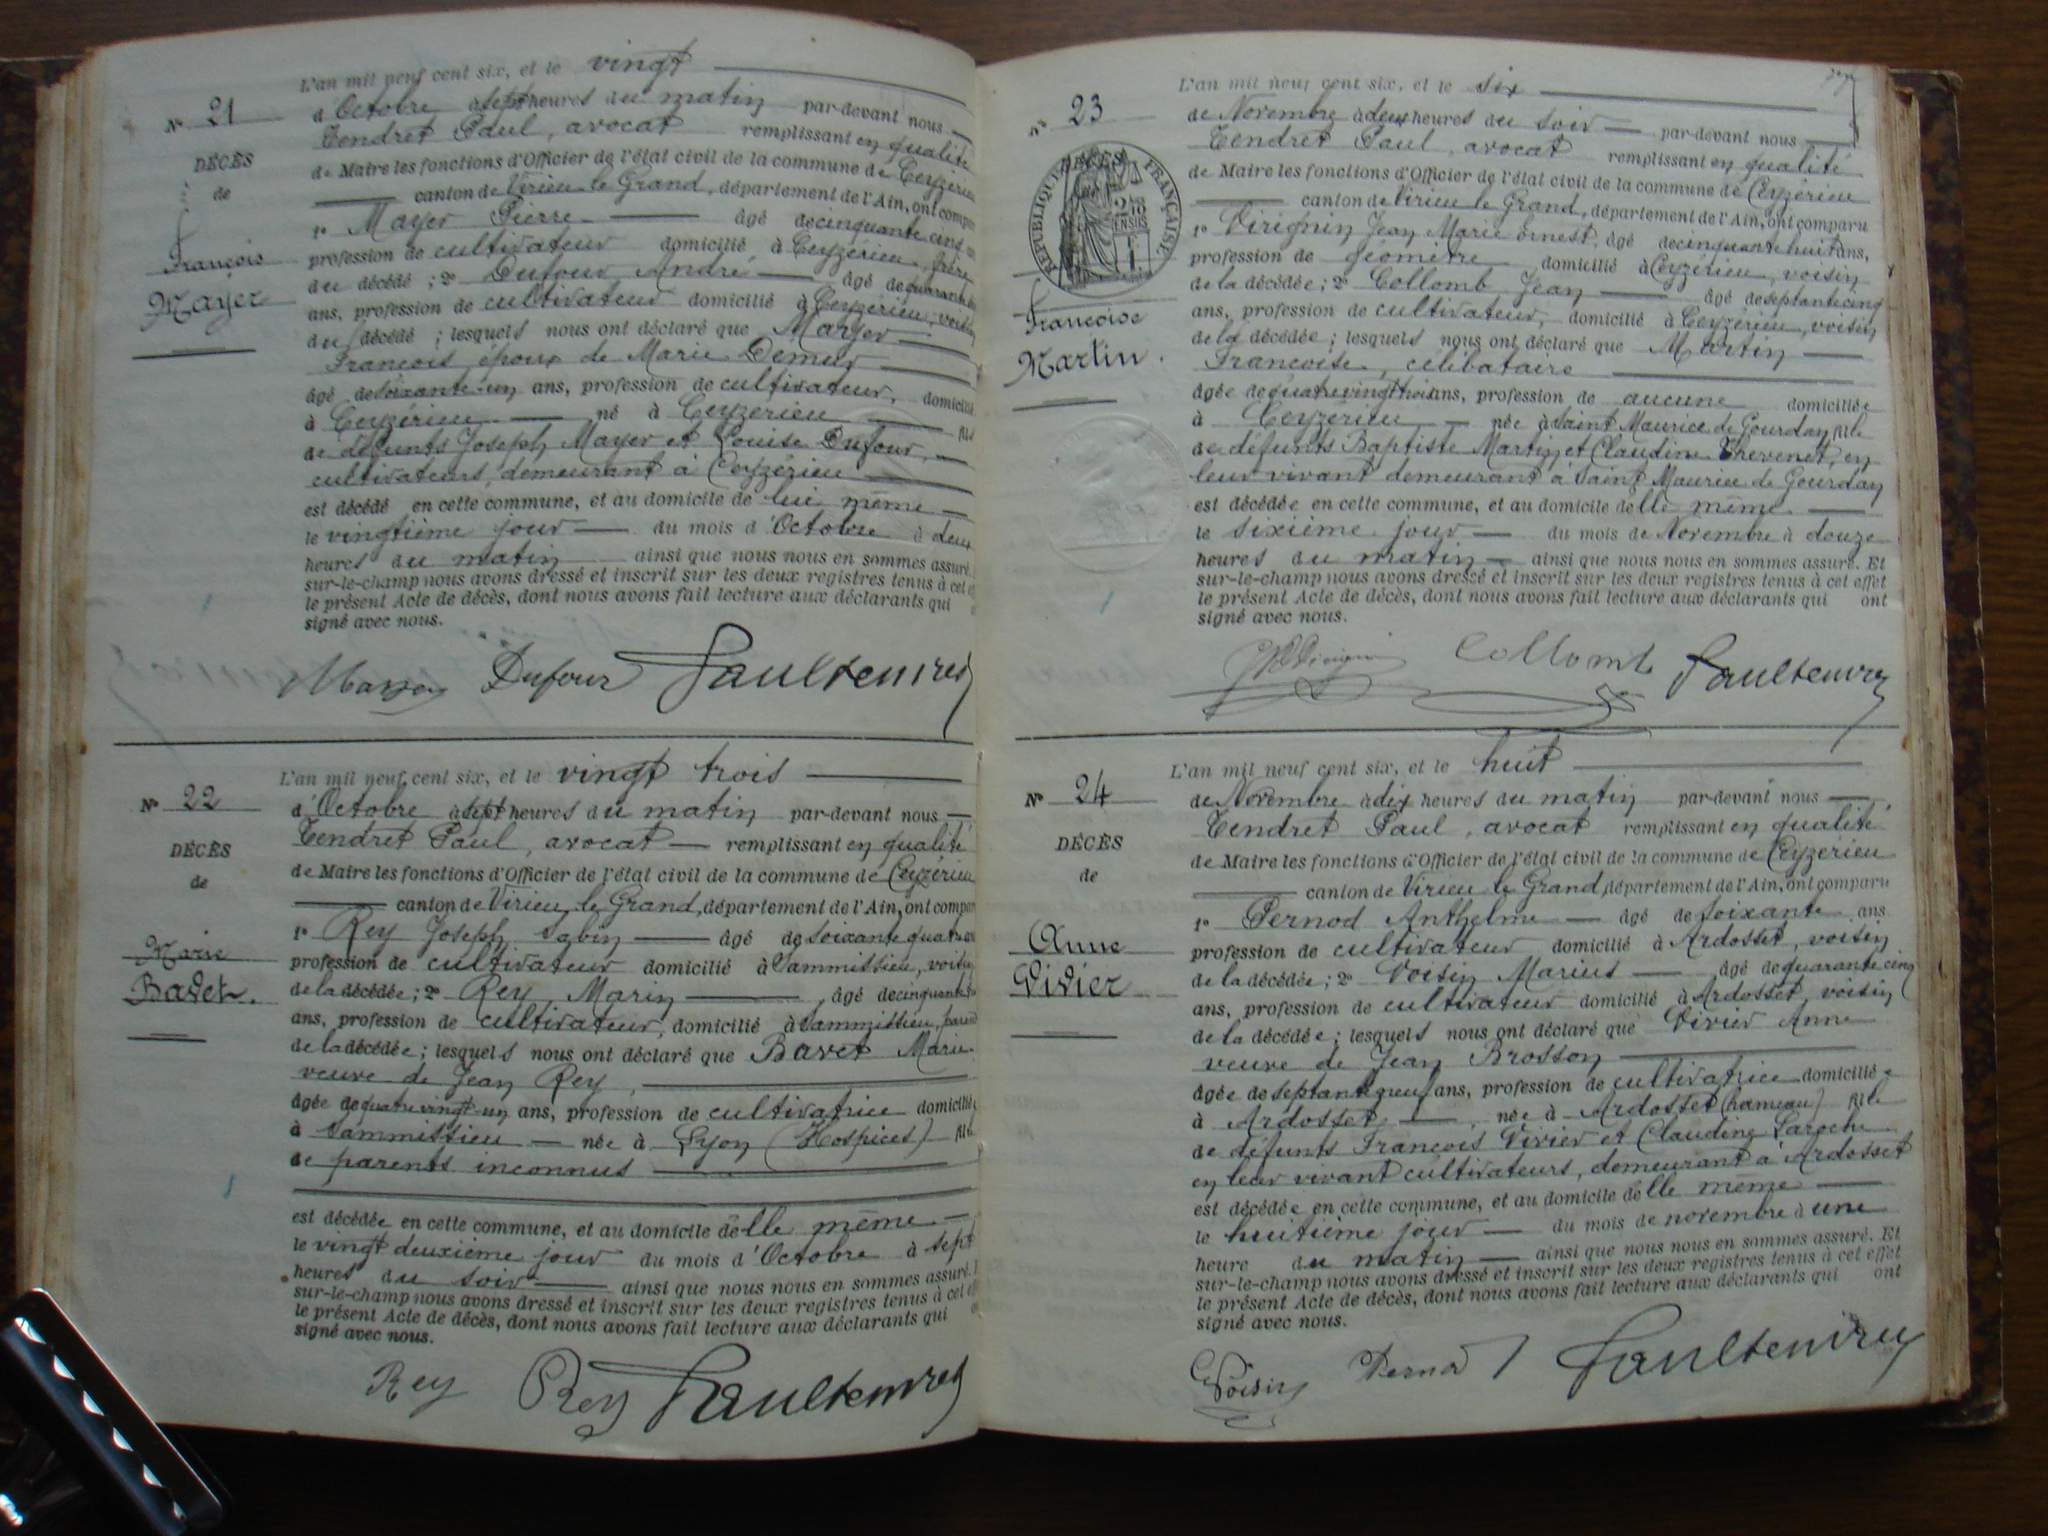 L'an mil neuf cent six, et le vingt
N° 21
d'Octobre à sept heures du matin par-devant nous
Tendret Paul, avocat remplissant en qualité
DÉCÈS
de Maire les fonctions d'Officier de l'état civil de la commune de Ceyzérieu
de
canton de Virieu le Grand, département de l'Ain, ont compar
1° Mayer Pierre âgé de cinquante cinq
François
Mayer
profession de cultivateur domicilié à Ceyzérieu, frère
du décédé ; 2° Dufour André âgé de quarante
ans, profession de cultivateur domicilié à Ceyzérieu, voisin
du décédé ; lesquels nous ont déclaré que Mayer
François époux de Marie Demur
âgé de soixante-un ans, profession de cultivateur, domicilié
à Ceyzérieu né à Ceyzérieu fils
de défunts Joseph Mayer et Louise Dufour,
cultivateurs, demeurant à Ceyzérieu
est décédé en cette commune, et au domicile de lui même
le vingtième jour du mois d'Octobre à deux
heures du matin ainsi que nous nous en sommes assuré.
sur-le-champ nous avons dressé et inscrit sur les deux registres tenus à cet
le présent Acte de décès, dont nous avons fait lecture aux déclarants qui
signé avec nous.
Mayer Dufour Paul Tendret
L'an mil neuf cent six, et le vingt trois
N° 22
d'Octobre à sept heures du matin par-devant nous
Tendret Paul, avocat remplissant en qualité
DÉCÈS
de
de Maire les fonctions d'Officier de l'état civil de la commune de Ceyzérieu
canton de Virieu le Grand, département de l'Ain, ont compar
1° Rey Joseph Sabin âgé de soixante quatre
Marie
Bavet.
profession de cultivateur domicilié à Vammissieu, voisin
de la décédée ; 2° Rey Marin âgé de cinquante
ans, profession de cultivateur, domicilié à Vammissieu, parent
de la décédée ; lesquels nous ont déclaré que Bavet Marie
veuve de Jean Rey,
âgée de quatre vingt un ans, profession de cultivatrice domiciliée
à Vammissieu née à Lyon (Hospices) fille
de parents inconnus
est décédée en cette commune, et au domicile d'elle même
le vingt deuxième jour du mois d'Octobre à sept
heures du soir ainsi que nous nous en sommes assuré.
sur-le-champ nous avons dressé et inscrit sur les deux registres tenus à cet
le présent Acte de décès, dont nous avons fait lecture aux déclarants qui
signé avec nous.
Rey Rey Paul Tendret
L'an mil neuf cent six, et le six
N° 23
de Novembre à deux heures du soir par-devant nous
Tendret Paul, avocat remplissant en qualité
DÉCÈS
RÉPUBLIQUE FRANÇAISE
de Maire les fonctions d'Officier de l'état civil de la commune de Ceyzérieu
canton de Virieu le Grand, département de l'Ain, ont comparu
1° Virignin Jean Marie Ernest, âgé de cinquante huit ans,
profession de géomètre domicilié à Ceyzérieu, voisin
de la décédée ; 2° Collomb Jean âgé de septante cinq
Françoise
Martin.
ans, profession de cultivateur, domicilié à Ceyzérieu, voisin
de la décédée ; lesquels nous ont déclaré que Martin
Françoise, célibataire
âgée de quatre vingt trois ans, profession de aucune domiciliée
à Ceyzérieu née à Saint Maurice de Gourdan fille
de défunts Baptiste Martin et Claudine Thevenet, en
leur vivant demeurant à Saint Maurice de Gourdan
est décédée en cette commune, et au domicile d'elle même
le sixième jour du mois de Novembre à douze
heures du matin ainsi que nous nous en sommes assuré. Et
sur-le-champ nous avons dressé et inscrit sur les deux registres tenus à cet effet
le présent Acte de décès, dont nous avons fait lecture aux déclarants qui ont
signé avec nous.
Collomb Paul Tendret
L'an mil neuf cent six, et le huit
N° 24
de Novembre à dix heures du matin par-devant nous
Tendret Paul, avocat remplissant en qualité
DÉCÈS
de
de Maire les fonctions d'Officier de l'état civil de la commune de Ceyzerieu
canton de Virieu le Grand, département de l'Ain, ont comparu
1° Pernod Anthelme âgé de soixante ans
Anne
Vivier
profession de cultivateur domicilié à Ardosset, voisin
de la décédée ; 2° Voisin Marius âgé de quarante cinq
ans, profession de cultivateur domicilié à Ardosset, voisin
de la décédée ; lesquels nous ont déclaré que Vivier Anne
veuve de Jean Brosson
âgée de septante neuf ans, profession de cultivatrice domiciliée
à Ardosset, née à Ardosset (hameau) fille
de défunts François Vivier et Claudine Laroche
en leur vivant cultivateurs, demeurant à Ardosset
est décédée en cette commune, et au domicile d'elle même
le huitième jour du mois de novembre à une
heure du matin ainsi que nous nous en sommes assuré. Et
sur-le-champ nous avons dressé et inscrit sur les deux registres tenus à cet effet
le présent Acte de décès, dont nous avons fait lecture aux déclarants qui ont
signé avec nous.
Voisin Pernod Paul Tendret